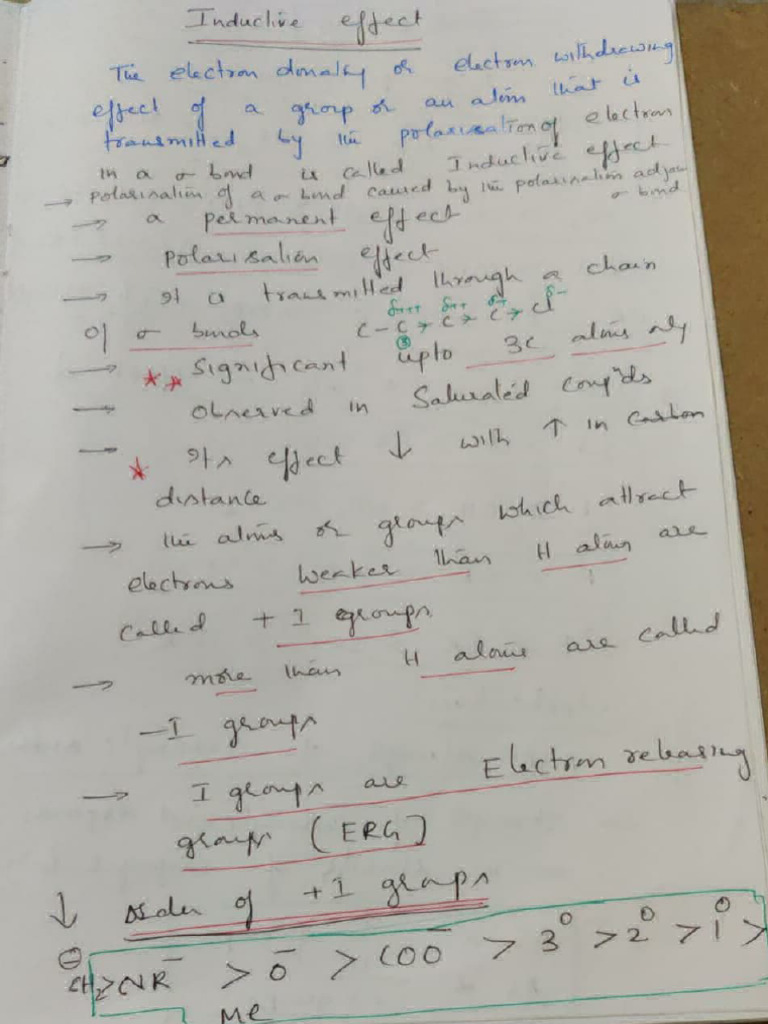 Inductive effect
The electron donating or electron withdrawing
effect of a group or an atom that is
transmitted by the polarisation of electron
in a σ bond is called Inductive effect
→ polarisation of a σ bond caused by the polarisation adjacent
σ bond
→ a permanent effect
→ polarisation effect
→ It is transmitted through a chain
of σ bonds C-C→C→C→Cl
δ+++ δ++ δ+ δ-
③
→ ** Significant upto 3C atoms only
→ Observed in Saturated comp'ds
→ * Its effect ↓ with ↑ in carbon
distance
→ the atoms or groups which attract
electrons weaker than H atom are
called + I groups
→ more than H atoms are called
-I groups
→ I groups are Electron releasing
groups (ERG)
↓ order of +I groups
⊖
CH₂>NR⁻ > O⁻ > COO⁻ > 3⁰ > 2⁰ > 1⁰ >
Me